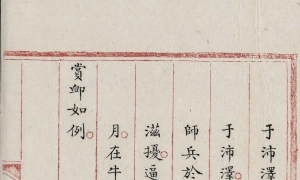 于沛澤
于沛澤
師兵於
滋擾逼
月在牛
賞卹如例